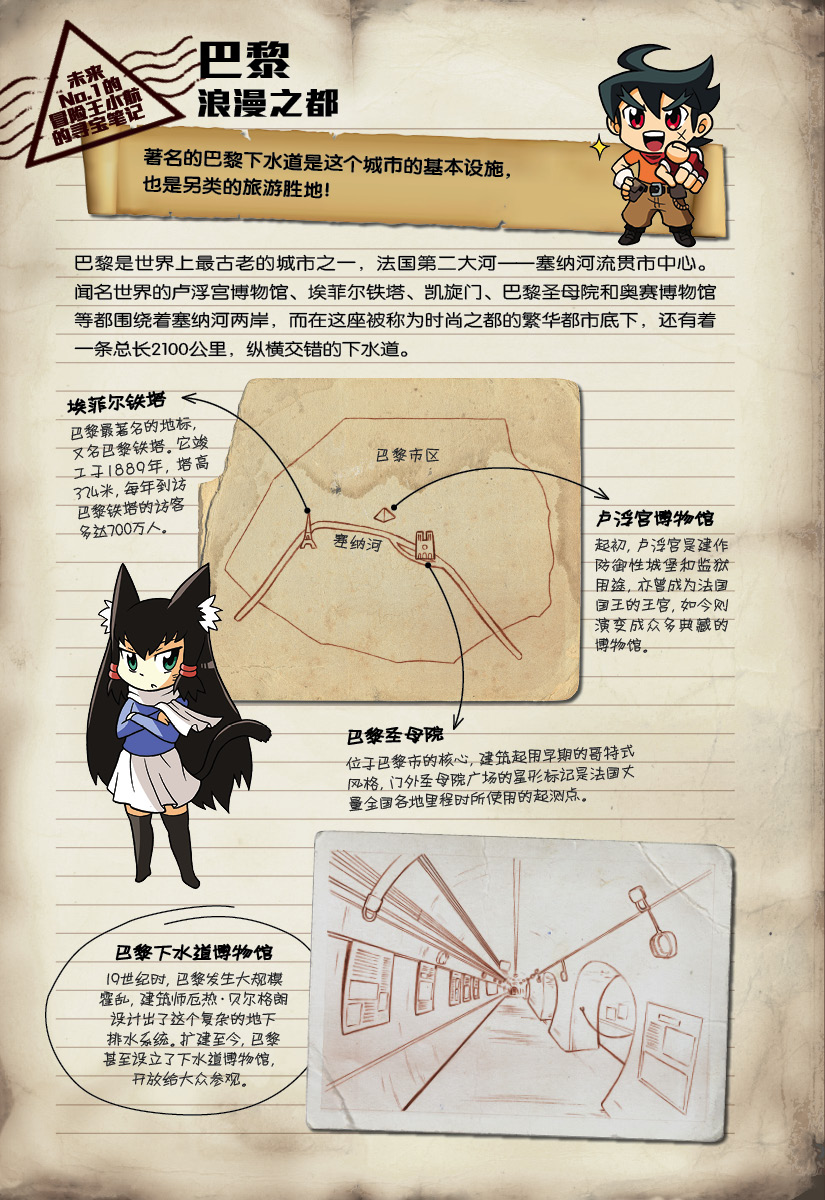 未来
No.1的
冒险王小航
的寻宝笔记
巴黎
浪漫之都
著名的巴黎下水道是这个城市的基本设施，
也是另类的旅游胜地！
巴黎是世界上最古老的城市之一，法国第二大河——塞纳河流贯市中心。
闻名世界的卢浮宫博物馆、埃菲尔铁塔、凯旋门、巴黎圣母院和奥赛博物馆
等都围绕着塞纳河两岸，而在这座被称为时尚之都的繁华都市底下，还有着
一条总长2100公里，纵横交错的下水道。
埃菲尔铁塔
巴黎最著名的地标，
又名巴黎铁塔。它竣
工于1889年，塔高
324米，每年到访
巴黎铁塔的访客
多达700万人。
巴黎市区
塞纳河
卢浮宫博物馆
起初，卢浮宫是建作
防御性城堡和监狱
用途，亦曾成为法国
国王的王宫，如今则
演变成众多典藏的
博物馆。
巴黎圣母院
位于巴黎市的核心，建筑起用早期的哥特式
风格，门外圣母院广场的星形标记是法国丈
量全国各地里程时所使用的起测点。
巴黎下水道博物馆
19世纪时，巴黎发生大规模
霍乱，建筑师厄热·贝尔格朗
设计出了这个复杂的地下
排水系统。扩建至今，巴黎
甚至设立了下水道博物馆，
开放给大众参观。